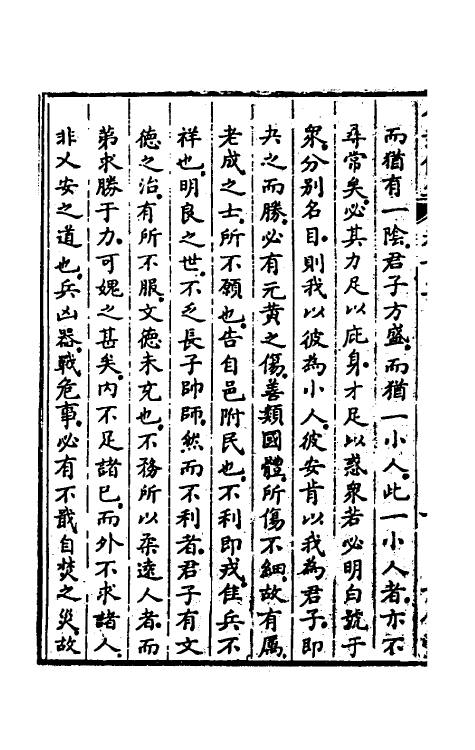 而猶有一陰。君子方盛。而猶一小人。此一小人者。亦不
尋常矣。必其力足以庇身。才足以惑衆。若必明白號于
衆。分别名目。則我以彼為小人。彼安肯以我為君子。即
夬之而勝。必有元黃之傷。善類國體。所傷不細。故有厲。
老成之士。所不願也。告自邑附民也。不利即戎。佳兵不
祥也。明良之世。不乏長子帥師。然而不利者。君子有文
德之治。有所不服。文德未充也。不務所以柔遠人者。而
第求勝于力。可媿之甚矣。内不足諸已。而外不求諸人。
非乂安之道也。兵凶器。戰危事。必有不戢自焚之災。故